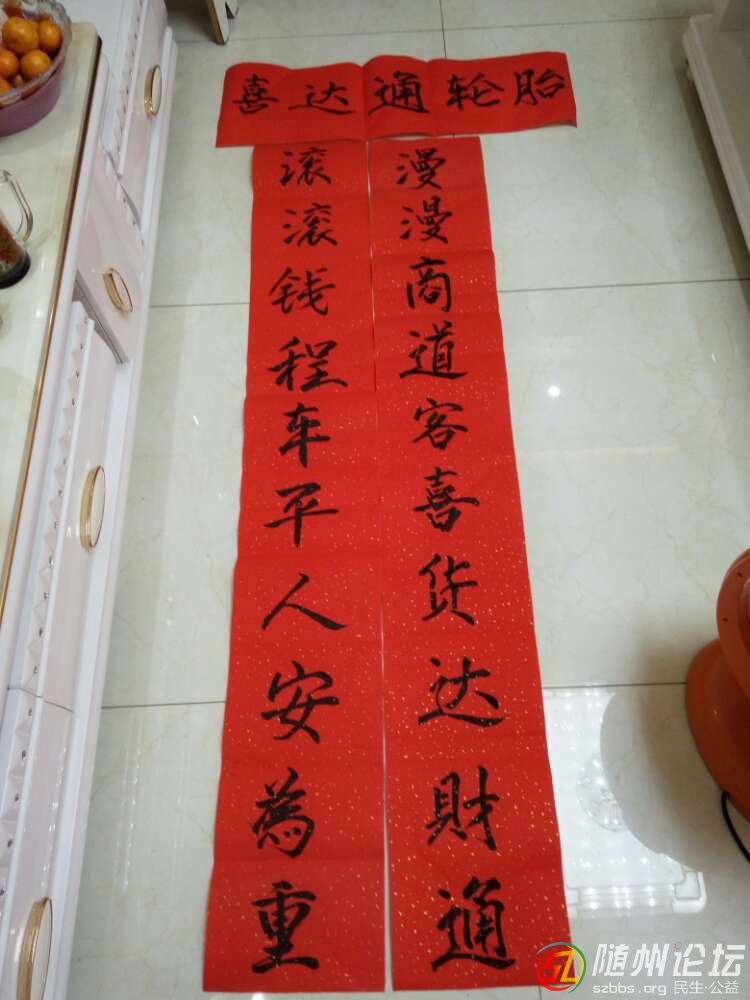 喜达通轮胎
滚滚钱程车平人安為重
漫漫商道客喜货达財通
随州论坛
szbbs.org 民生·公益